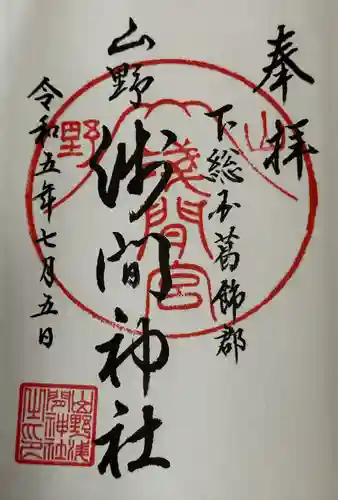 奉拝
下総国葛飾郡
山野
浅間神社
令和五年七月五日
山野
浅間宮
山野浅間神社之印